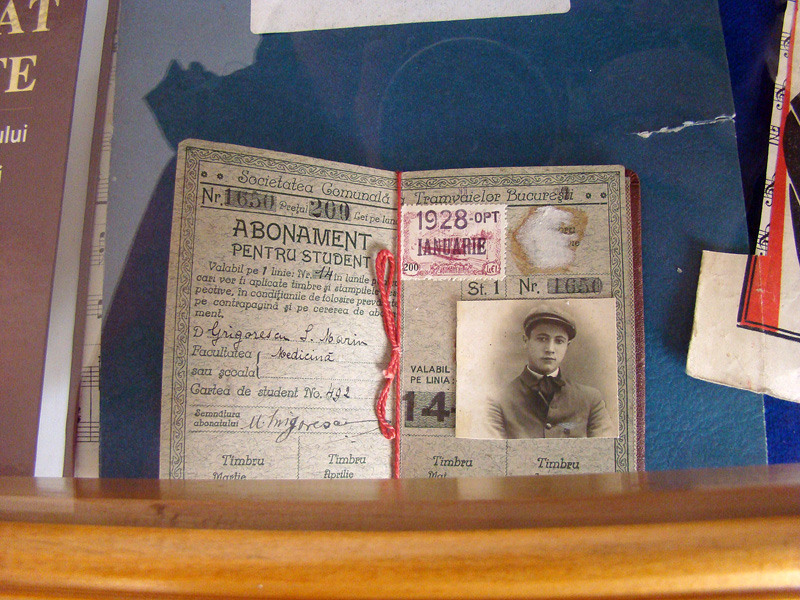 AT
TE
ului
i
Societatea Comunală a Tramvaielor București
Nr. 1650 Prețul 200 Lei pe
ABONAMENT
PENTRU STUDENT
Valabil pe 1 linie: Nr. 14 în lunile
cari vor fi aplicate timbre și stampilele
pective, în condițiunile de folosire
pe contrapagină și pe cererea de
ment.
D Grigorescu S. Marin
Facultatea Medicină
sau școala
Cartea de student No. 492
Semnătura
abonatului M Grigorescu
Timbru Timbru
Martie Aprilie
1928-OPT
IANUARIE
200 LEI
St. 1 Nr. 1650
VALABIL
PE LINIA:
14
Timbru Timbru
Mai